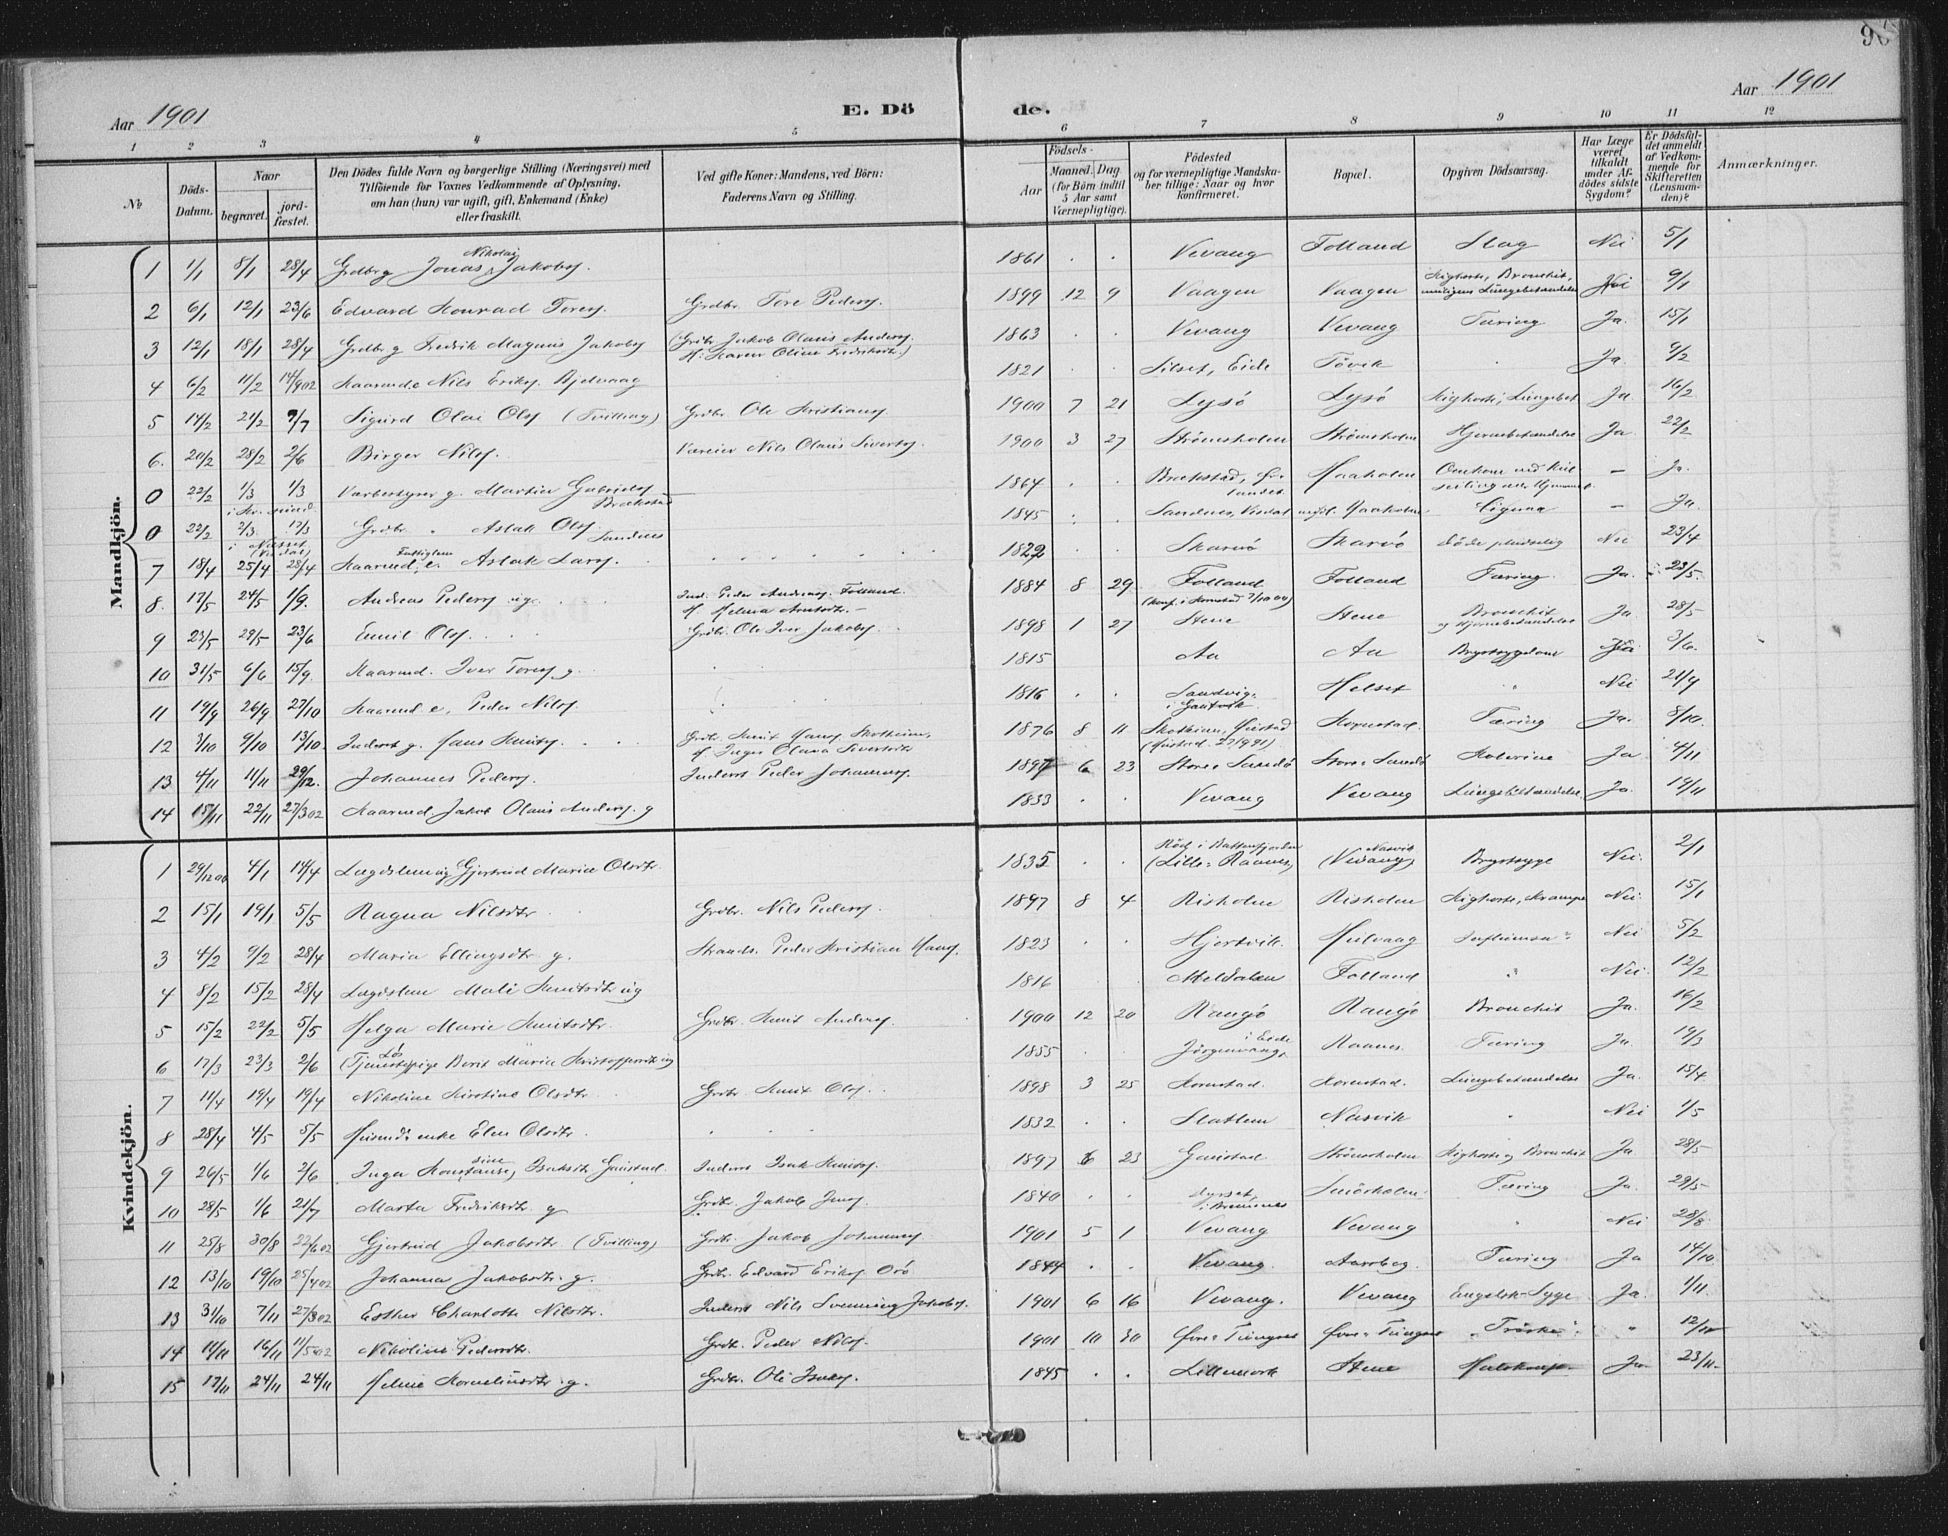 90
Aar 1901 E. Dö de. Aar 1901
1 2 3 4 5 6 7 8 9 10 11 12
№ Döds-Datum. Naar begravet. jord-fæstet. Den Dödes fulde Navn og borgerlige Stilling (Næringsvei) med Tilföiende for Voxnes Vedkommende af Oplysning, om han (hun) var ugift, gift, Enkemand (Enke) eller fraskilt. Ved gifte Koner: Mandens, ved Börn: Faderens Navn og Stilling. Födsels- Aar Maaned. Dag (for Börn indtil 5 Aar samt Værnepligtige). Födested og for værnepligtige Mandskaber tillige: Naar og hvor konfirmeret. Bopæl. Opgiven Dödsaarsag. Har Læge været tilkaldt under Afdödes sidste Sygdom? Er Dödsfaldet anmeldt af Vedkommende for Skifteretten (Lensmanden)? Anmærkninger.
Mandkjön.
1 1/1 8/1 28/4 Grdbr g Jonas Nikolai Jakobs. 1861 . . Vevang Folland Slag Nei 5/1
2 6/1 12/1 23/6 Edvard Konrad Tores. Grdbr. Tore Peders. 1899 12 9 Vaagen Vaagen Kighoste, Bronchit, muligens Lungebetændelse Nei 9/1
3 12/1 18/1 28/4 Grdbr g Fredrik Magnus Jakobs (Grdbr Jakob Olaus Anders. H. Karen Oline Fredriksdtr.) 1863 . . Vevang Vevang Tæring Ja. 15/1
4 6/2 11/2 14/9 02 Kaarmd. e Nils Eriks. Bjelvaag 1821 . . Silset, Eide Tövik . Ja. 9/2
5 14/2 21/2 7/7 Sigurd Olai Ols (Tvilling) Grdbr. Ole Kristians. 1900 7 21 Lysö Lysö Kighoste, Lungebet. Ja 16/2
6. 20/2 28/2 2/6 Birger Nils. Væreier Nils Olaus Siverts. 1900 3 27 Strömsholm Strömsholm Hjernebetændelse Ja. 22/2
0 22/2 1/3 i Kr.sund 1/3 g. Martin Gabriels. Brækstad 1864 . . Brækstad, Haaholm Omkom ved — Ja.
0 22/2 2/3 i Nesset (Visdal) 17/3 Grdbr. Aslak Ols. Sandnes 1845 . . Sandnes, Visdal Haaholm. Ligesaa — Ja.
7 18/4 25/4 28/4 Kaarmd. e. Fattiglem Aslak Lars. 1822 . . Skarvö Skarvö döde pludselig Nei 23/4
8. 17/5 24/5 1/9. Andreas Peders. ug. Ind. Peder Andreas. Folland. M. Helena Arntsdtr. 1884 8 29 Folland (konf. i Kornstad 7/10 00) Folland Tæring. Ja. 23/5.
9 23/5 29/5 23/6 Emil Ols. Grdbr. Ole Iver Jakobs. 1898 1 27 Stene Stene Bronchit og Hjernebetændelse Ja. 28/5
10 31/5 6/6 15/9. Kaarmd. Iver Tores. g. 1815 Aa Aa Brystsygdom 3/6.
11 19/9 26/9 27/10 Kaarmd e. Peder Nils. 1816 . . Sandvig i Gautvik. Helset " Nei 21/9
12 3/10 9/10 13/10. Inderst g. Hans Knuts. Grdbr. Knut Hans. Skotheim, M. Inger Olava Sivertsdtr 1876 8 11 Skotheim, Hustad (Hustad 27/9 91) Kornstad. Tæring Ja. 8/10.
13 4/11 11/11 29/12. Johannes Peders. Inderst Peder Johannes. 1897 6 23 Store Sandö Store Sandö Ja 4/11
14 15/11 22/11 27/3 02 Kaarmd. Jakob Olaus Anders. g 1833 . . Vevang Vevang Lungebetændelse. Ja. 19/11
Kvindekjön.
1 29/12 00 4/1 14/4 Lægdslem ug Gjertrud Marie Olsdtr. 1835 . . Röd i Battenfjorden (Lille-Raanes) Nasvik (Vevang) Brystsyge Nei. 2/1
2 15/1 19/1 5/5 Ragna Nilsdtr Grdbr. Nils Peders. 1897 8 4 Risholm Risholm Kighoste, Krampe Nei. 15/1
3 4/2 9/2 28/4 Maria Ellingsdtr g. Strands. Peder Kristian Hans. 1823 . . Hjertvik. Influensa? Nei 5/2
4 8/2 15/2 28/4 Lægdslem Mali Knutsdtr ug 1816 . . Meldalen Folland " Nei. 12/2
5 15/2 22/2 5/5 Helga Marie Knutsdtr. Grdbr. Knut Anders. 1900 12 20 Rangö Rangö Bronchit Ja. 16/2
6 17/3 23/3 2/6 (Tjenestepige) Lös Berit Maria Kristoffersdtr ug 1855 . Jörgenvaag, i Eide Raanes. Tæring Ja. 19/3
7 11/4 19/4 19/4 Nikoline Kirstine Olsdtr. Grdbr. Knut Ols. 1898 3 25 Kornstad. Kornstad. Lungebetændelse Ja. 15/4
8 28/4 4/5 5/5 Husmds enke Elen Olsdtr. 1832 . . Slatlem Nasvik " Nei 1/5
9 26/5 1/6 2/6 Inga Konstanse, Isaksdtr. Gaustad. Inderst Isak Knuts. 1897 6 23 Gaustad Strömsholm Kighoste og Bronchit Ja 28/5
10 28/5 1/6 21/7 Marta Fredriksdtr. g Grdbr. Jakob Jens. 1840 . . i Bremsnes Smörholm. Tæring Ja. 29/5
11 25/8 30/8 22/6 02 Gjertrud Jakobsdtr. (Tvilling) Grdbr. Jakob Johannes 1901 5 1 Vevang Vevang " Nei 28/8
12 13/10 19/10 25/4 02 Johanna Jakobsdtr. g. Grdbr. Edvard Eriks. Orö 1844 . . Vevang. Aarsbog. Tæring Ja 14/10
13 31/10 7/11 27/3 02 Esther Charlotte Nilsdtr. Inderst Nils Svenning Jakobs. 1901 6 16 Vevang. Vevang Engelsk Syge Ja. 1/11
14 10/11 16/11 11/5 02 Nikoline Pedersdtr. Grdbr. Peder Nils. 1901 10 30 Övre-Tungnes Övre-Tungnes "Tröske". " 12/11
15 17/11 24/11 24/11 Helene Korneliusdtr. g. Grdbr. Ole Isaks. 1845 . . Lillemork Stene Ja 23/11